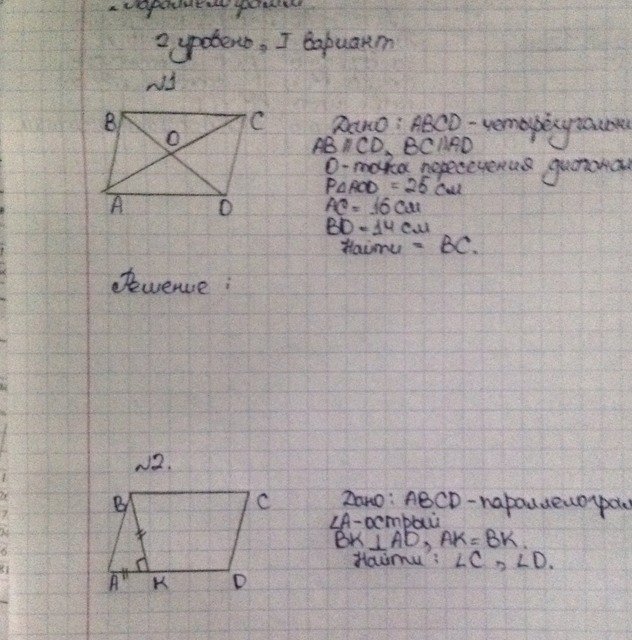 2 уровень, I вариант
№1
B C
O
A D
Дано: ABCD - четырёхугольни
AB || CD, BC || AD
O - точка пересечения диагонал
P△AOD = 25 см
AC = 16 см
BD = 14 см
Найти = BC.
Решение:
№2.
B C
A K D
Дано: ABCD - параллелограм
∠A - острый
BK ⊥ AD, AK = BK.
Найти: ∠C, ∠D.